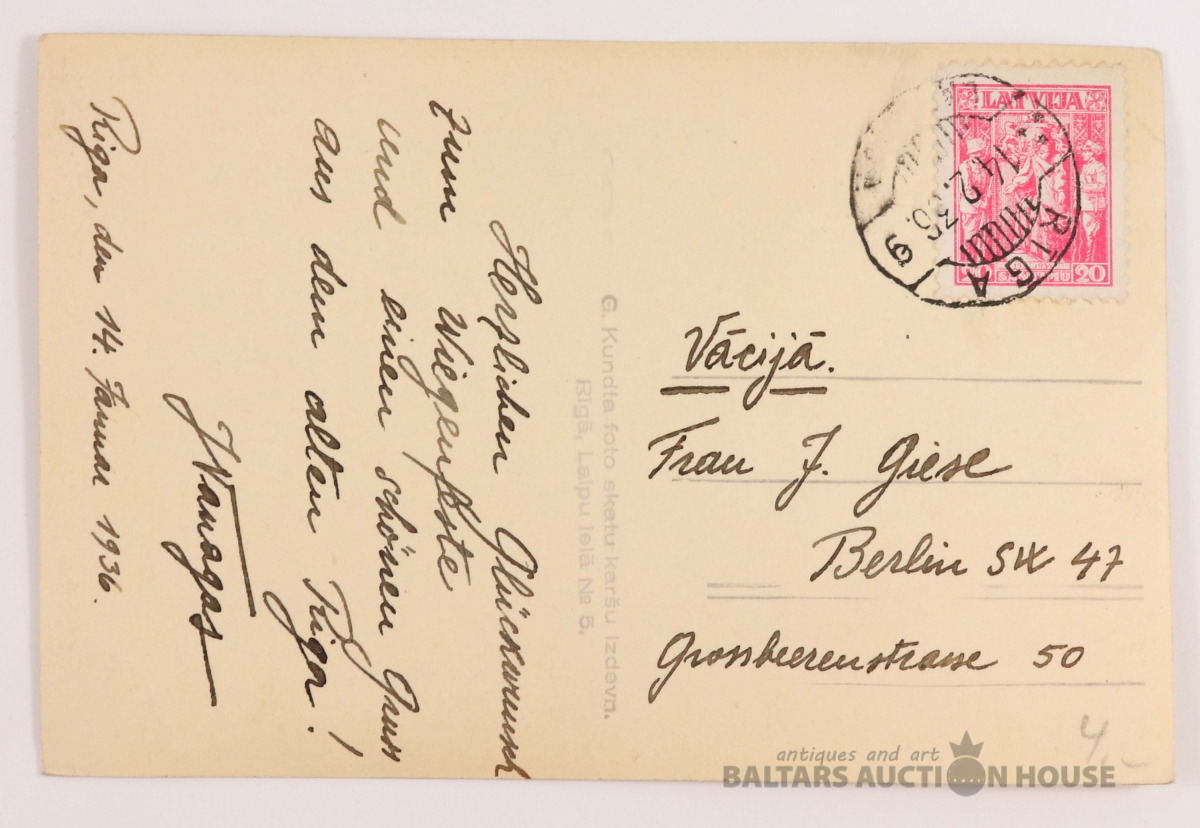 Herzlichen Glückwunsch
zum Wiegenfeste
und einen schönen Gruss
aus dem alten Riga!
JWanagas
Riga, den 14. Januar 1936.
G. Kundta foto skatu karšu izdevn.
Rīgā, Laipu ielā № 5.
LATVIJA
20
RIGA
9
Vācijā.
Frau J. Giese
Berlin SW 47
Grossbeerenstrasse 50
4,-
antiques and art
BALTARS AUCTION HOUSE